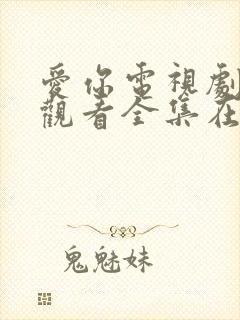 愛你電視劇
觀看全集在
鬼魅妹